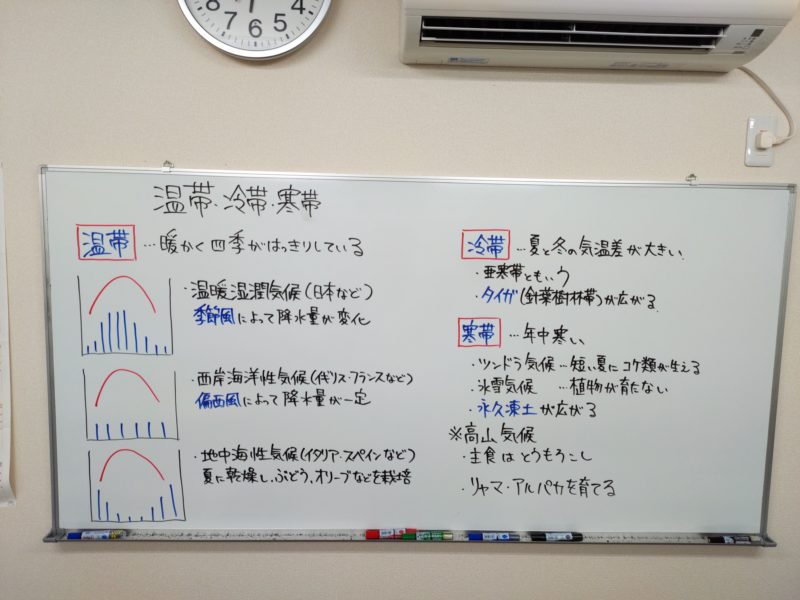 8 7 6 5 4
温帯・冷帯・寒帯
温帯 …暖かく四季がはっきりしている
・温暖湿潤気候(日本など)
季節風によって降水量が変化
・西岸海洋性気候(イギリス・フランスなど)
偏西風によって降水量が一定
・地中海性気候(イタリア・スペインなど)
夏に乾燥し、ぶどう、オリーブなどを栽培
冷帯 …夏と冬の気温差が大きい
・亜寒帯ともいう
・タイガ(針葉樹林帯)が広がる
寒帯 …年中寒い
・ツンドラ気候…短い夏にコケ類が生える
・氷雪気候 …植物が育たない
・永久凍土が広がる
※高山気候
・主食はとうもろこし
・リャマ・アルパカを育てる